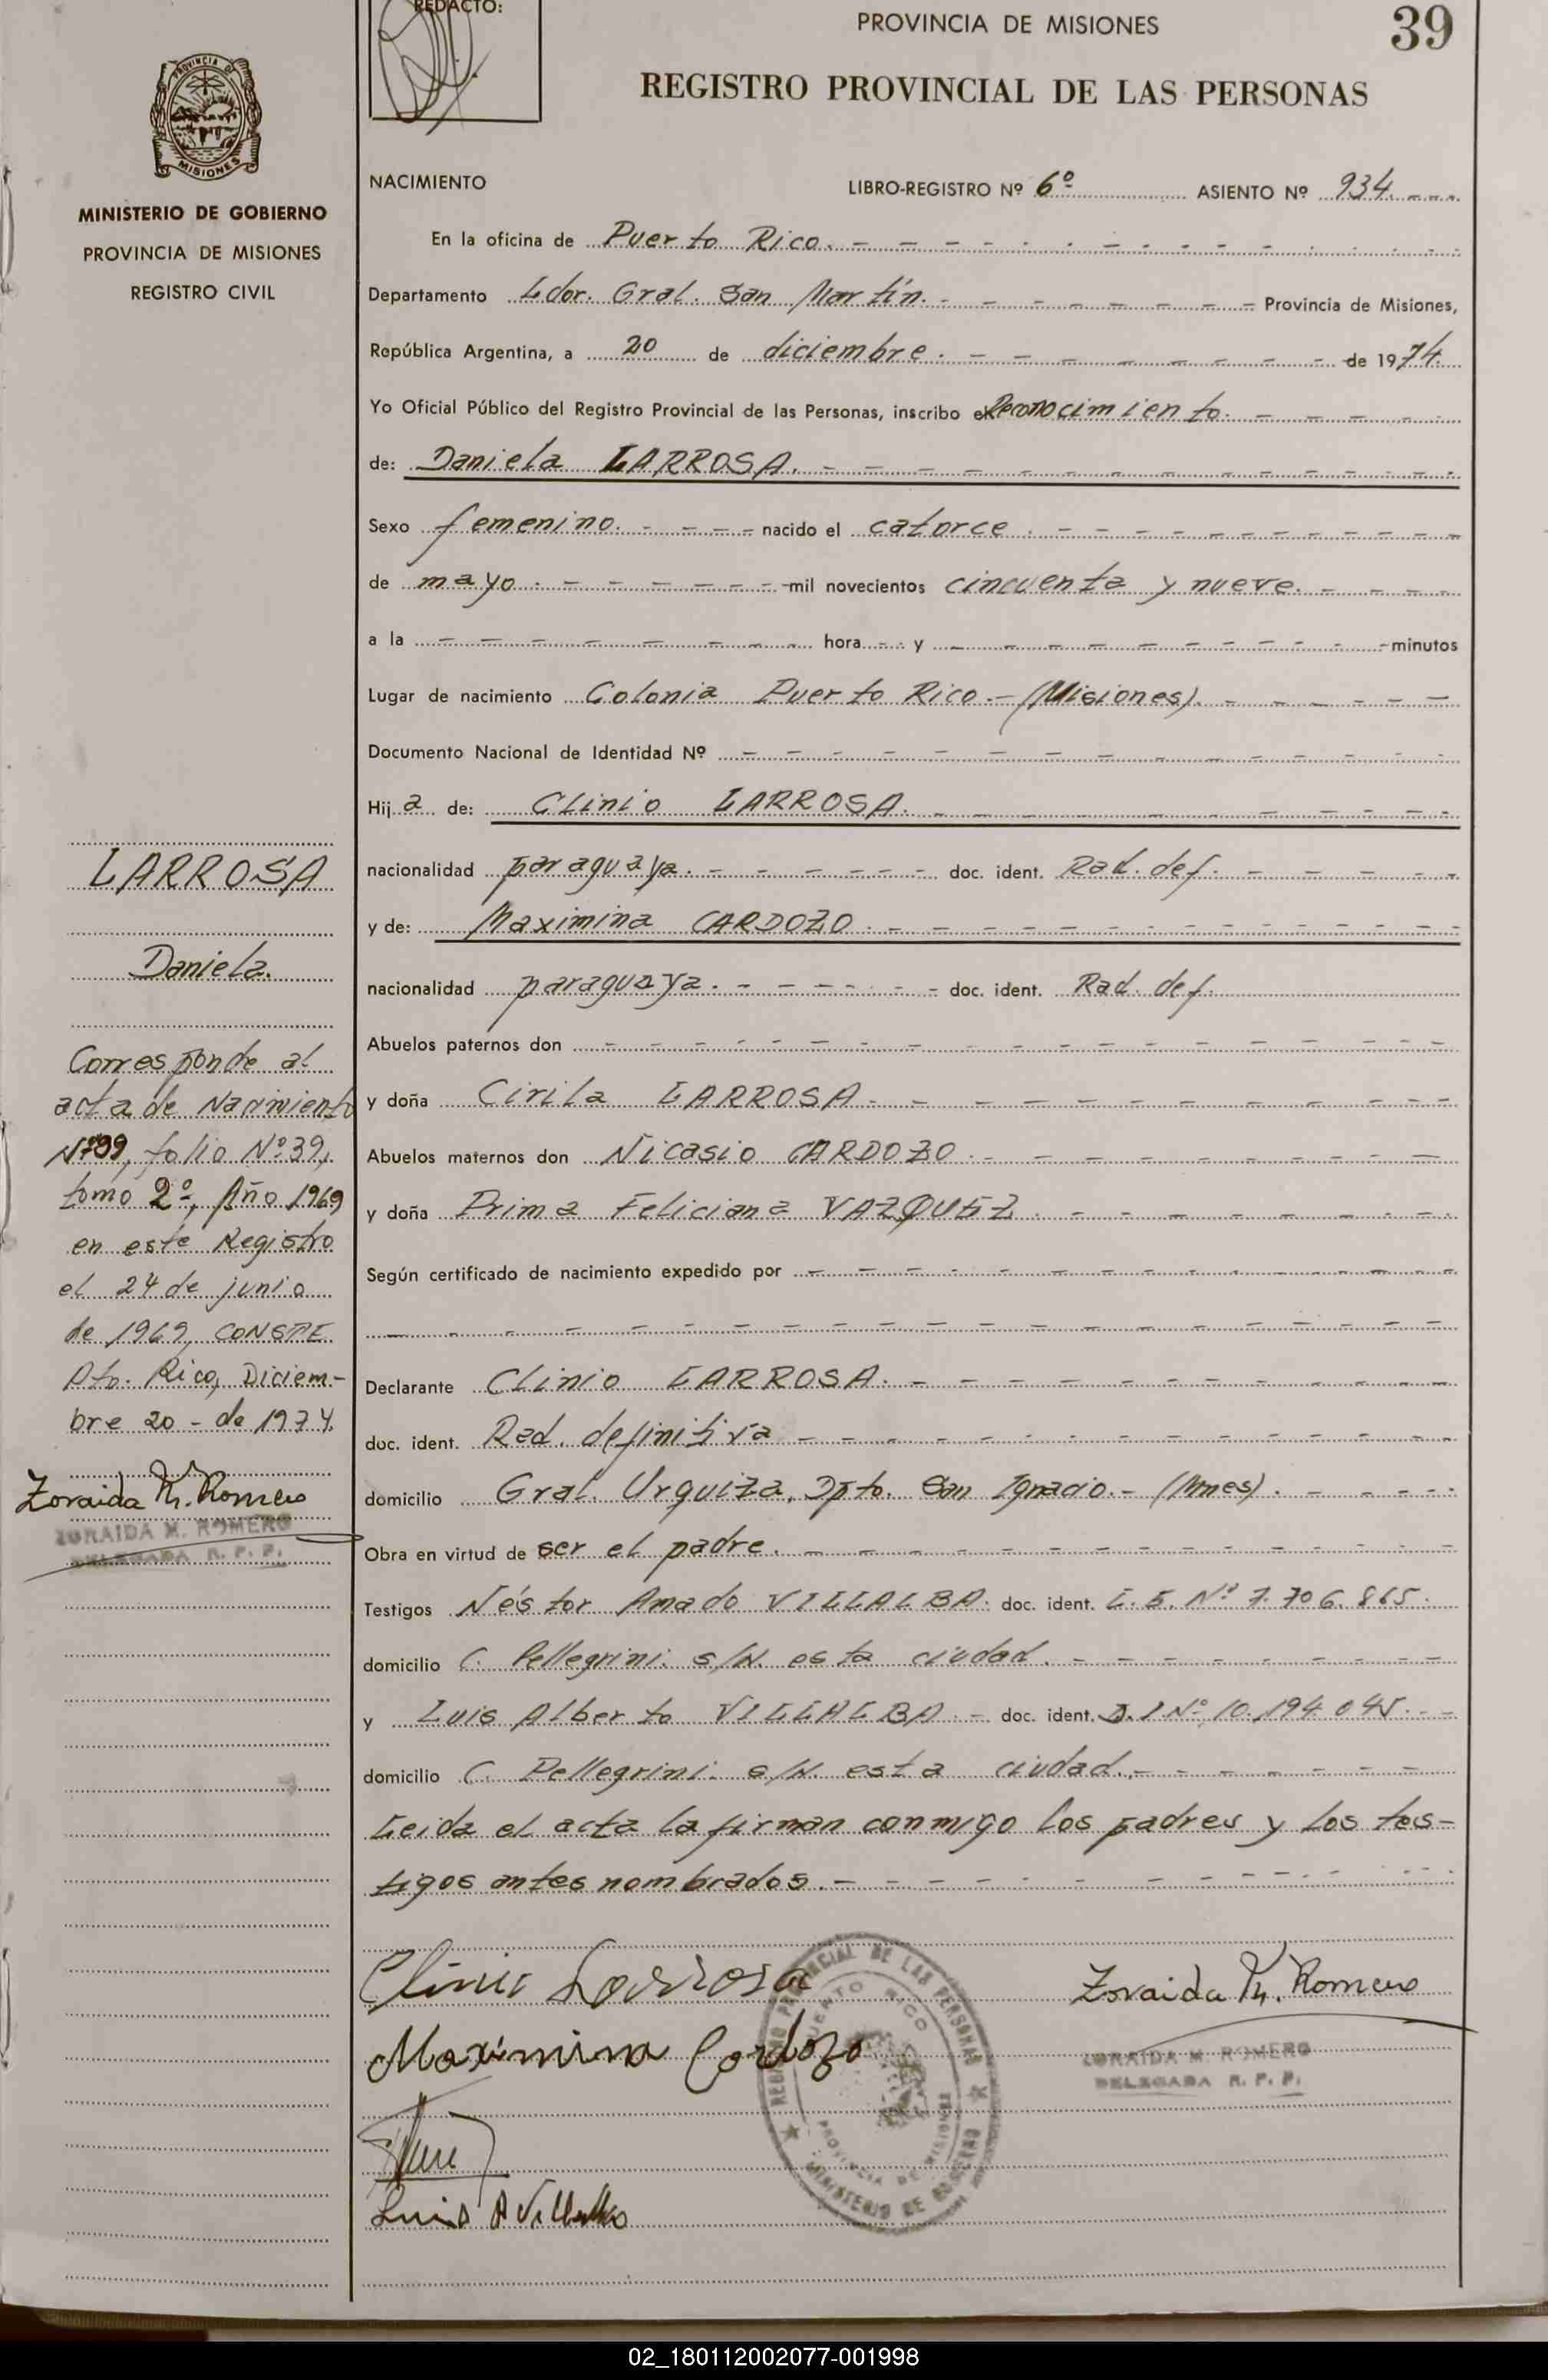 REDACTO:
PROVINCIA DE MISIONES
39
REGISTRO PROVINCIAL DE LAS PERSONAS
PROVINCIA DE
MISIONES
MINISTERIO DE GOBIERNO
PROVINCIA DE MISIONES
REGISTRO CIVIL
NACIMIENTO LIBRO-REGISTRO Nº 6º ASIENTO Nº 934
En la oficina de Puerto Rico.
Departamento Ldor. Gral. San Martín. Provincia de Misiones,
República Argentina, a 20 de diciembre. de 1974.
Yo Oficial Público del Registro Provincial de las Personas, inscribo el Reconocimiento.
de: Daniela LARROSA.
Sexo femenino. nacido el catorce
de mayo. mil novecientos cincuenta y nueve.
a la hora y minutos
Lugar de nacimiento Colonia Puerto Rico.- (Misiones).
Documento Nacional de Identidad Nº
Hija de: Clinio LARROSA.
nacionalidad paraguaya. doc. ident. Rad. def.
y de: Maximina CARDOZO.
nacionalidad paraguaya. doc. ident. Rad. def.
Abuelos paternos don
y doña Cirila LARROSA.
Abuelos maternos don Nicasio CARDOZO.
y doña Prima Feliciana VAZQUEZ.
Según certificado de nacimiento expedido por
Declarante Clinio LARROSA.
doc. ident. Rad. definitiva
domicilio Gral. Urquiza, Dpto. San Ignacio.- (Mnes).
Obra en virtud de ser el padre.
Testigos Néstor Amado VILLALBA. doc. ident. L.E. Nº 7.706.865.
domicilio C. Pellegrini. s/N. esta ciudad.
y Luis Alberto VILLALBA.- doc. ident. D.I Nº 10.194.045.
domicilio C. Pellegrini. s/N. esta ciudad.
Leida el acta la firman conmigo los padres y los tes-
tigos antes nombrados.
LARROSA
Daniela.
Corresponde al
acta de Nacimiento
Nº 99, folio Nº 39,
tomo 2º, Año 1969
en este Registro
el 24 de junio
de 1969, CONSTE.
Pto. Rico, Diciem-
bre 20 - de 1974.
Zoraida M. Romero
ZORAIDA M. ROMERO
DELEGADA R. P. P.
Clinio Larrosa
Zoraida M. Romero
Maximina Cardozo
ZORAIDA M. ROMERO
DELEGADA R. P. P.
REGISTRO PROVINCIAL DE LAS PERSONAS
PUERTO RICO
PROVINCIA DE MISIONES
MINISTERIO DE GOBIERNO
Luis A Villalba
02_180112002077-001998